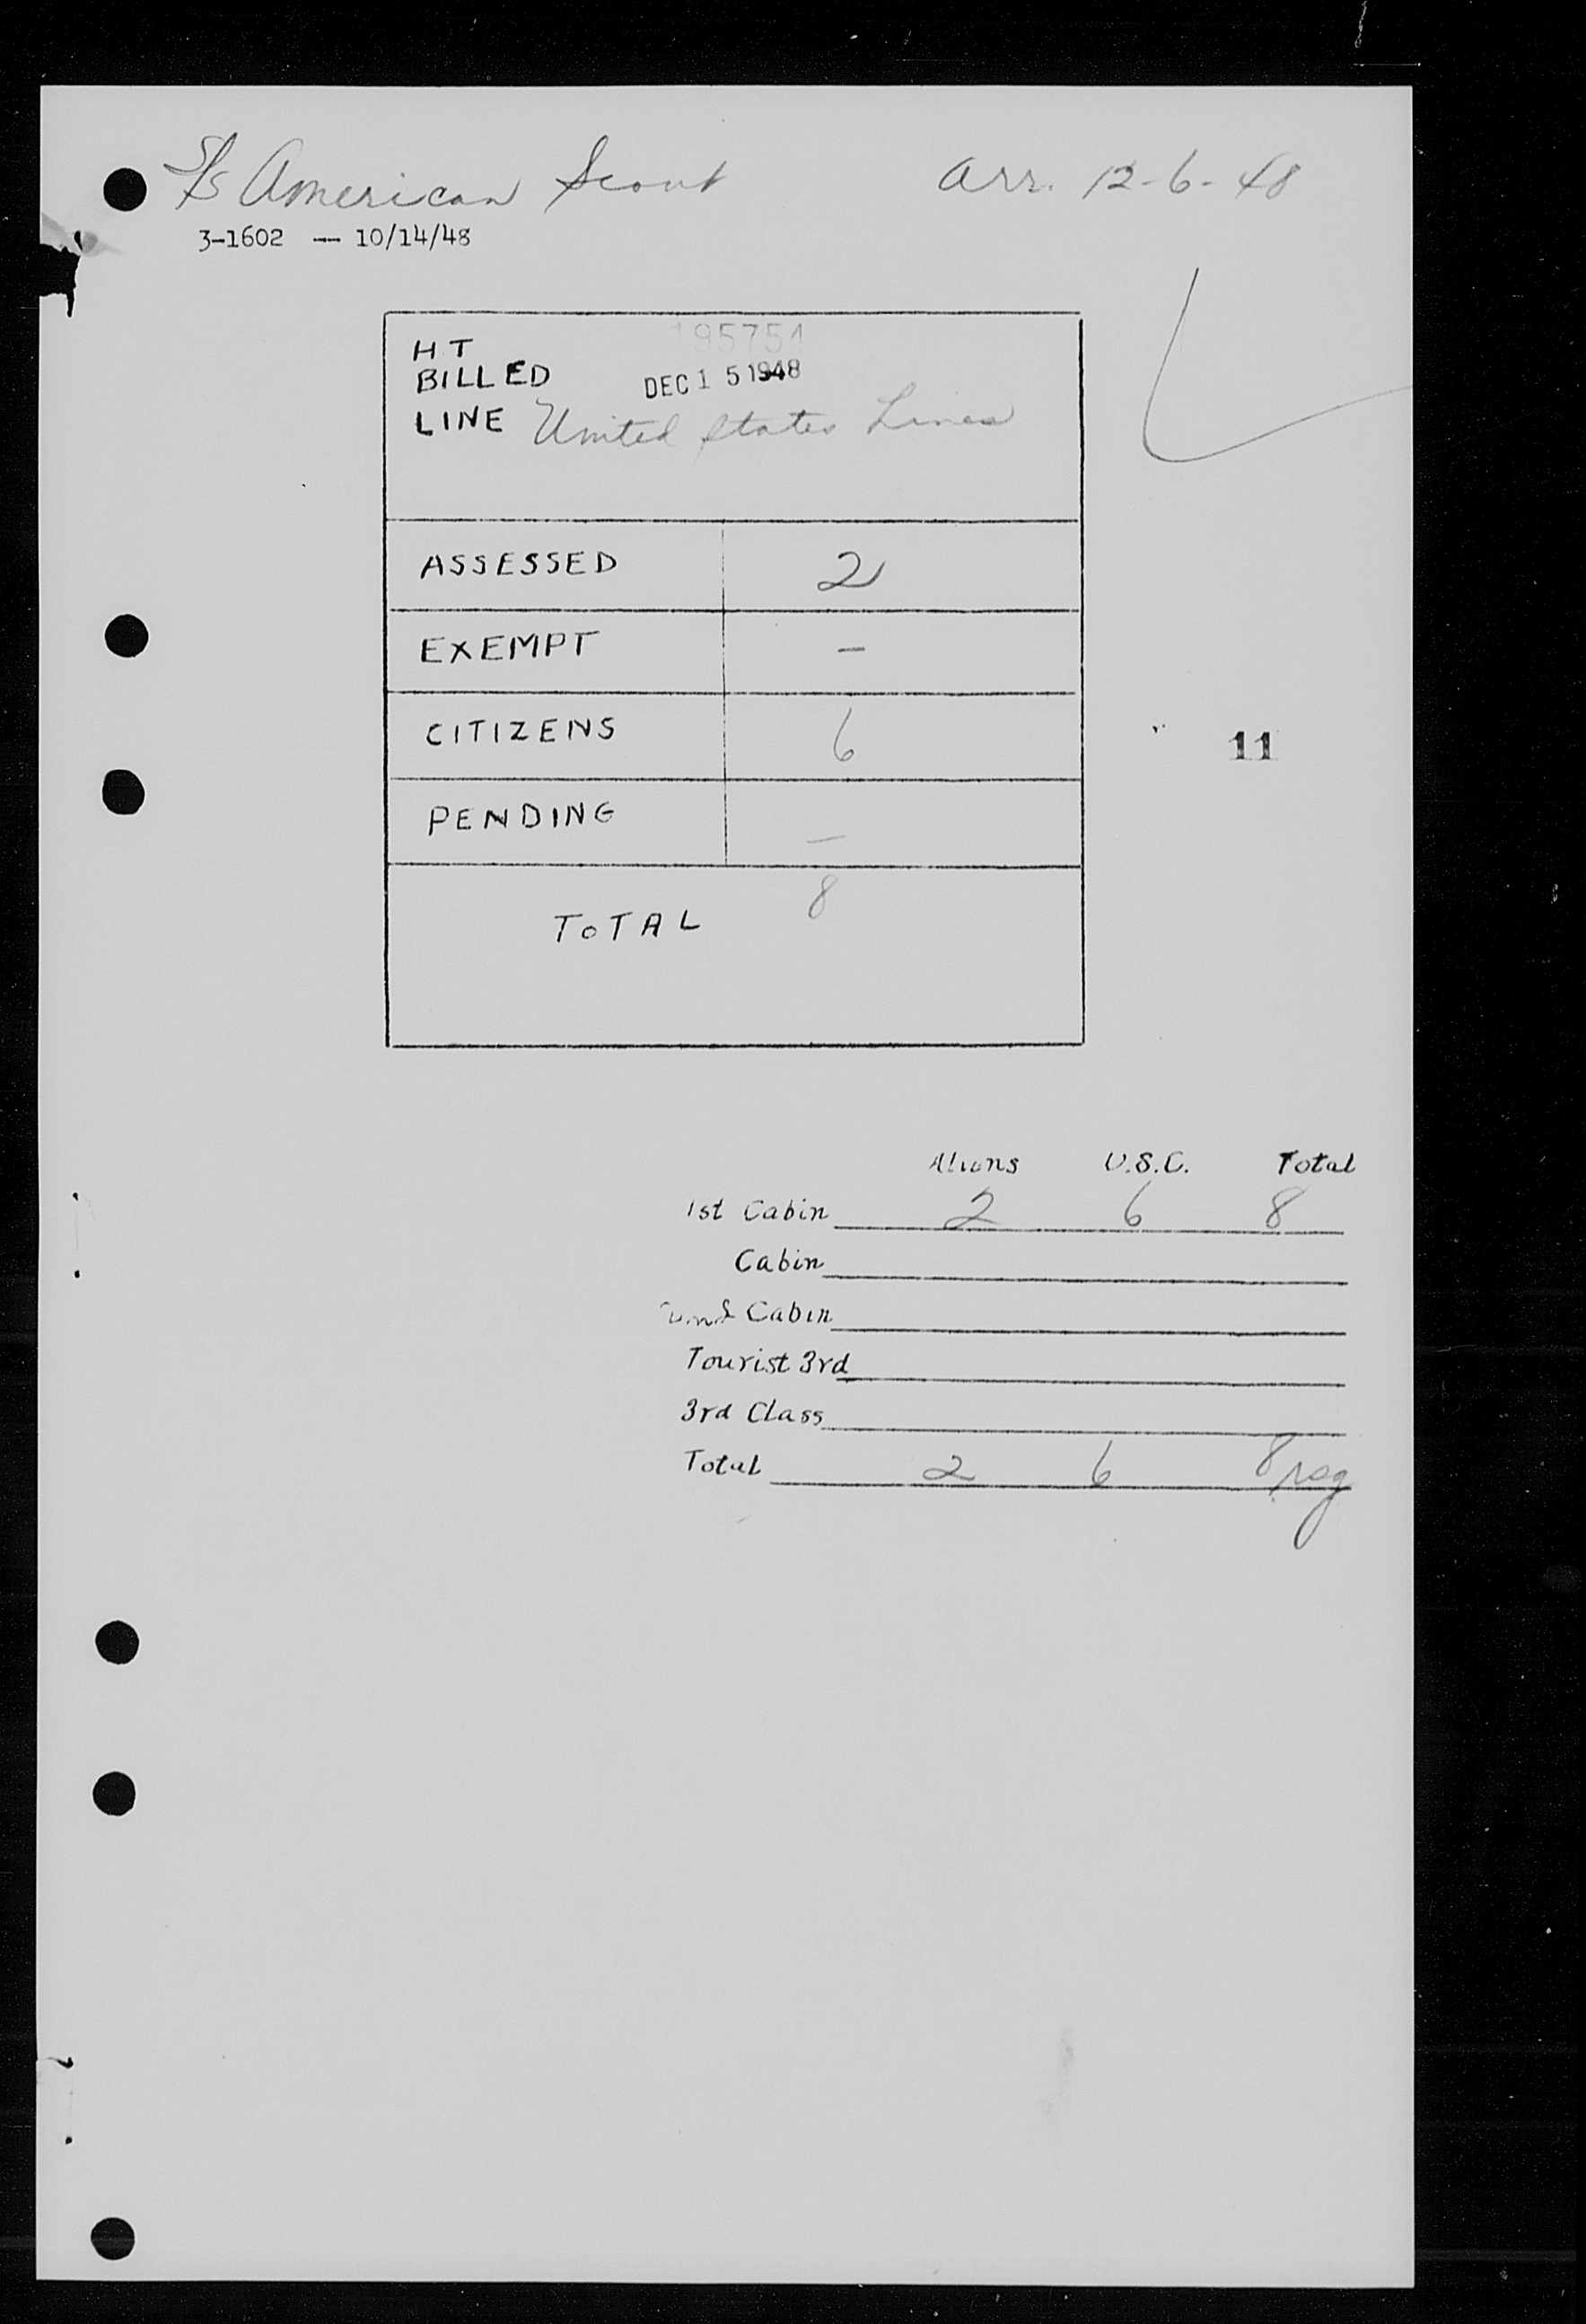 S/s American Scout arr. 12-6-48
3-1602 — 10/14/48
HT 195751
BILLED DEC 15 1948
LINE United States Lines
ASSESSED 2
EXEMPT -
CITIZENS 6
11
PENDING -
TOTAL 8
Aliens U.S.C. Total
1st Cabin 2 6 8
Cabin
Cabin
Tourist 3rd
3rd Class
Total 2 6 8